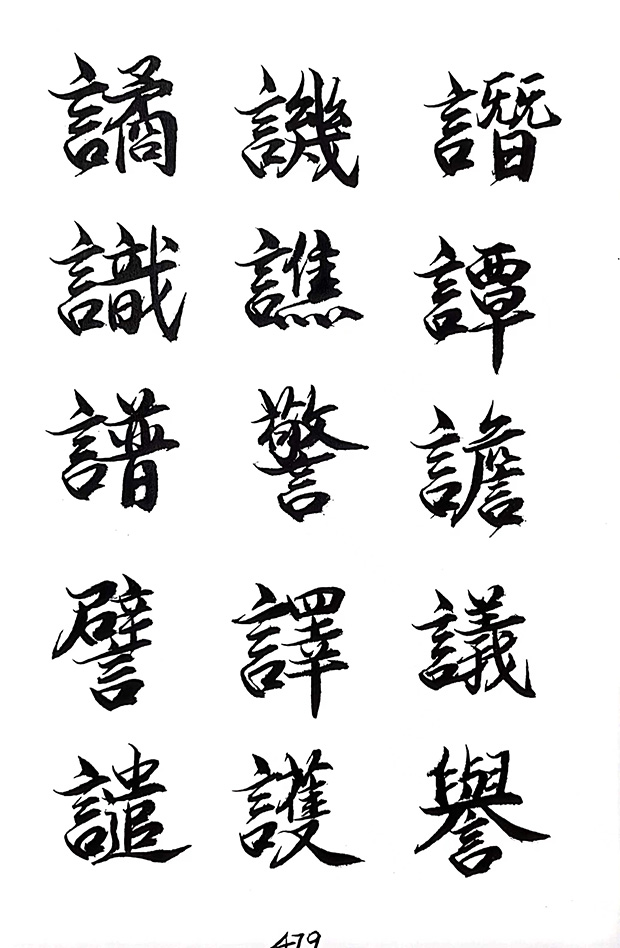 譎 譏 譖
識 譙 譚
譜 警 譫
譬 譯 議
譴 護 譽
479